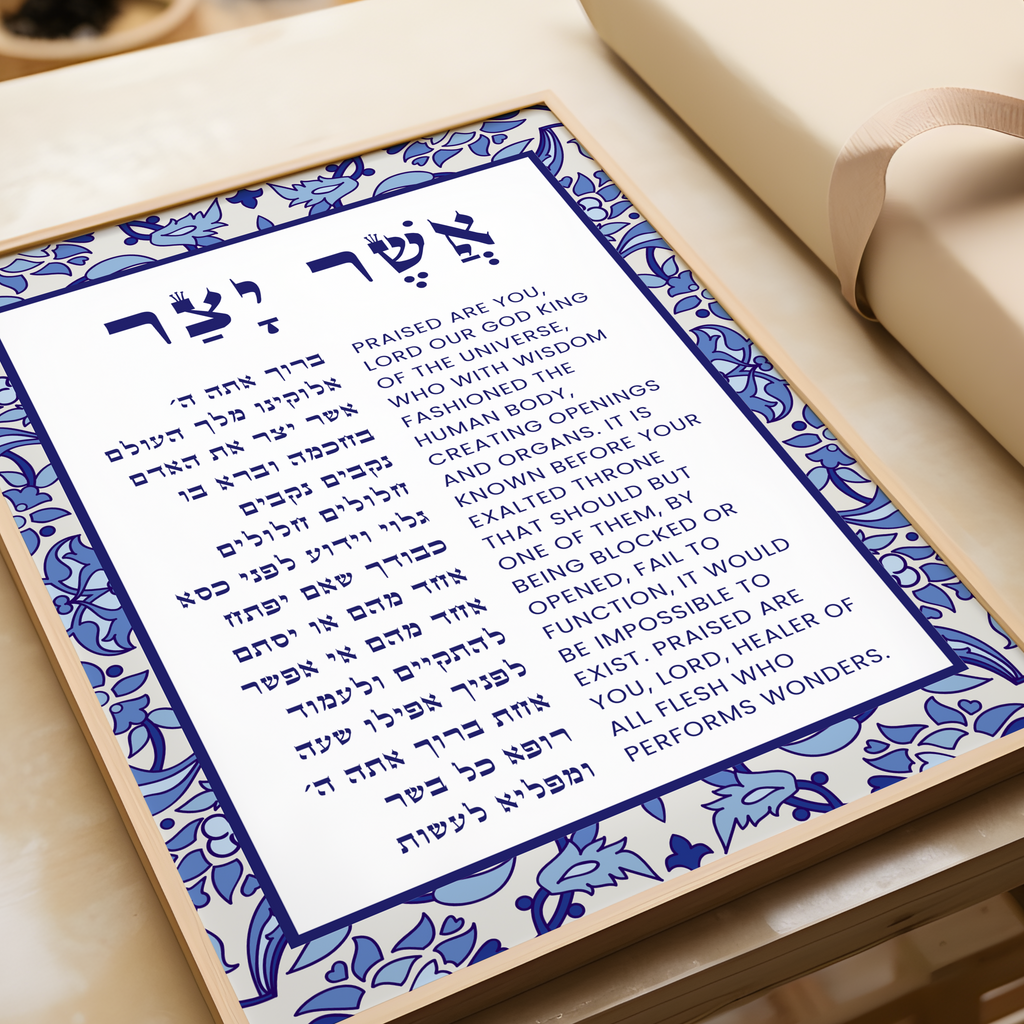 אֲשֶׁר יָצַר
ברוך אתה ה׳
אלוקינו מלך העולם
אשר יצר את האדם
בחכמה וברא בו
נקבים נקבים
חלולים חלולים
גלוי וידוע לפני כסא
כבודך שאם יפתח
אחד מהם או יסתם
אחד מהם אי אפשר
להתקיים ולעמוד
לפניך אפילו שעה
אחת ברוך אתה ה׳
רופא כל בשר
ומפליא לעשות
PRAISED ARE YOU,
LORD OUR GOD KING
OF THE UNIVERSE,
WHO WITH WISDOM
FASHIONED THE
HUMAN BODY,
CREATING OPENINGS
AND ORGANS. IT IS
KNOWN BEFORE YOUR
EXALTED THRONE
THAT SHOULD BUT
ONE OF THEM, BY
BEING BLOCKED OR
OPENED, FAIL TO
FUNCTION, IT WOULD
BE IMPOSSIBLE TO
EXIST. PRAISED ARE
YOU, LORD, HEALER OF
ALL FLESH WHO
PERFORMS WONDERS.